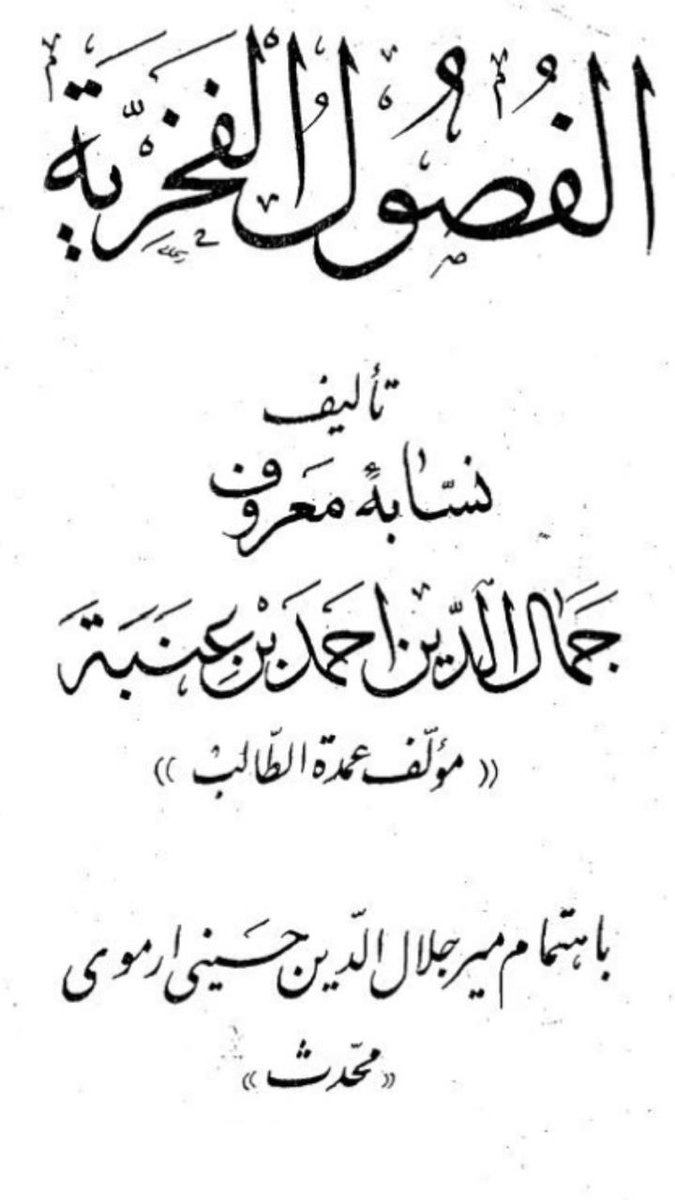 الفُصُول الفخریّة
تألیف
نسّابهٔ معروف
جَمال الدّین احمَد بْن عِنَبَة
«مؤلّف عمدة الطّالب»
باهتمام میر جلال الدّین حسَینی ارموی
«محدّث»